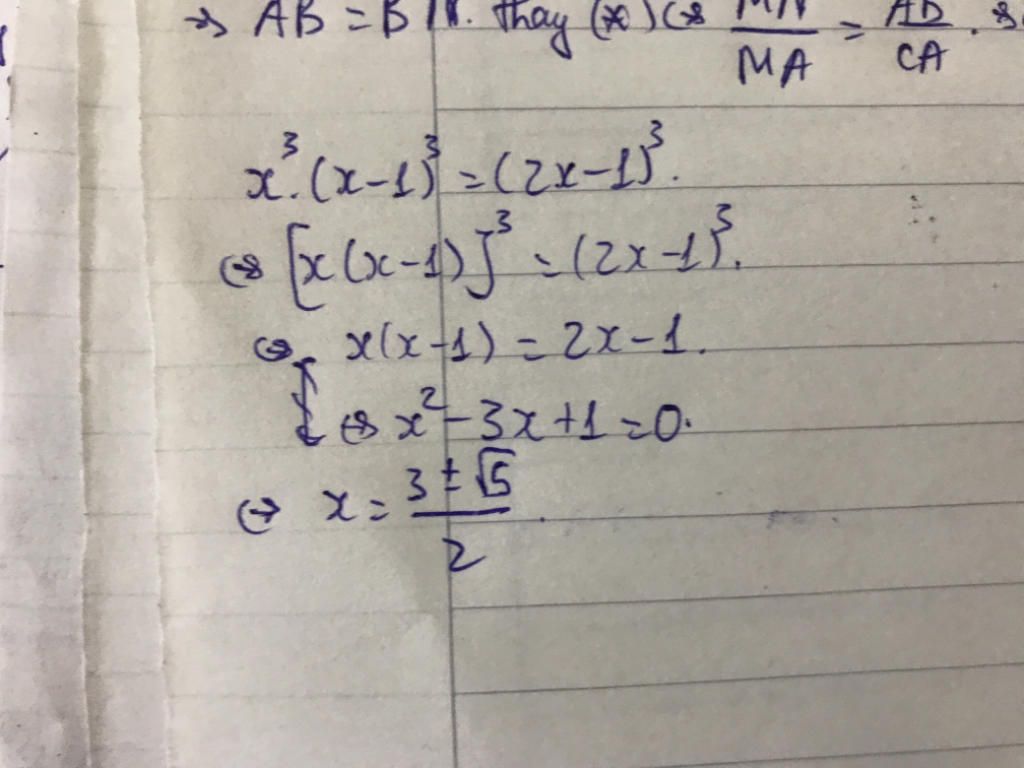 => AB = BN. thay (*) <=> MN/MA = AB/CA.
x³.(x-1)³ = (2x-1)³.
<=> [x(x-1)]³ = (2x-1)³.
<=> x(x-1) = 2x-1.
<=> x² - 3x + 1 = 0.
<=> x = (3 ± √5)/2.